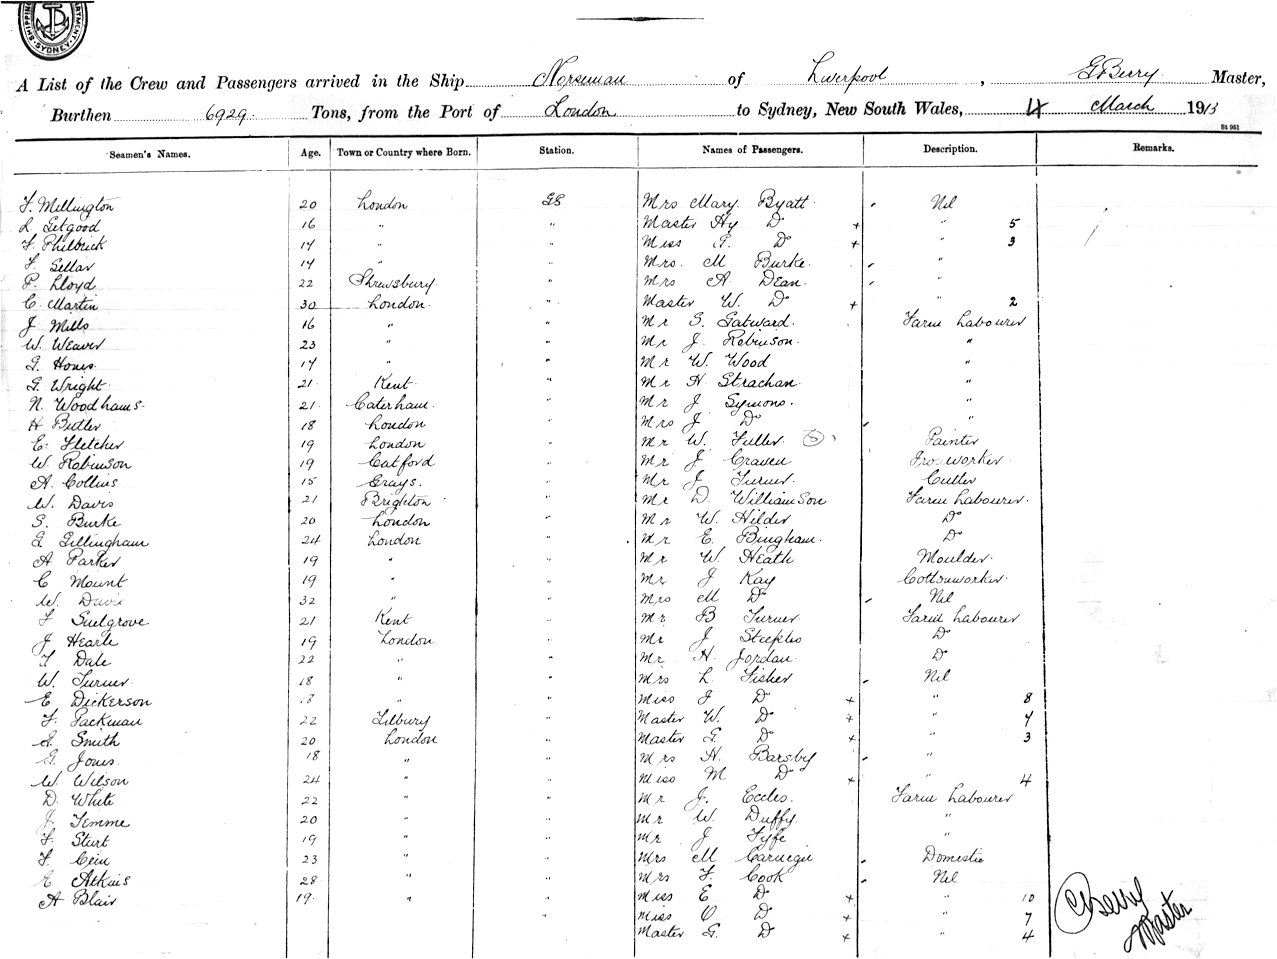 SHIPPING DEPARTMENT. SYDNEY.
A List of the Crew and Passengers arrived in the Ship Norseman of Liverpool, G Berry Master,
Burthen 6929 Tons, from the Port of London to Sydney, New South Wales, 4 March 1913
St 951
Seamen's Names. Age. Town or Country where Born. Station. Names of Passengers. Description. Remarks.
F. Millington 20 London GS Mrs Mary Byatt Nil
L. Getgood 16 " " Master Hy Do + " 5
F. Philbrick 17 " " Miss G. Do + " 3
F. Sellar 17 " " Mrs. M Burke "
P. Lloyd 22 Shrewsbury " Mrs A. Dean "
C. Martin 30 London " Master W. Do + " 2
J Mills 16 " " Mr S. Gatward Farm Labourer
W. Weaver 23 " " Mr J. Robinson "
G. 17 " " Mr W. Wood "
G. Wright 21 Kent " Mr H. Strachan "
N. Woodhams 21 Caterham " Mr J Symons "
H Butler 18 London " Mrs J Do "
E. Fletcher 19 London " Mr W. Fuller Painter
W. Robinson 19 Catford " Mr J Craven Ironworker
A. Collins 15 Grays " Mr J Turner Cutler
W. Davis 21 Brighton " Mr D. Williamson Farm Labourer
S. Burke 20 London " Mr W. Hilder Do
G Gillingham 24 London " Mr E. Bingham Do
A Parker 19 " " Mr W. Heath Moulder
C Mount 19 " " Mr J Kay Cottonworker
W. Davis 32 " " Mrs M Do Nil
F Snelgrove 21 Kent " Mr B Turner Farm Labourer
J Hearle 19 London " Mr J Steeples Do
T Dale 22 " " Mr H. Jordan Do
W. Turner 18 " " Mrs L Fisher Nil
E Dickerson 18 " " Miss J Do + " 8
F. Packman 22 Tilbury " Master W. Do + " 7
J. Smith 20 London " Master G Do + " 3
G. Jones 18 " " Mrs H. Barsby "
W. Wilson 24 " " Miss M Do + " 4
D. White 22 " " Mr J. Eccles Farm Labourer
J. Temme 20 " " Mr W. Duffy "
F. Sturt 19 " " Mr J Fyfe "
F. 23 " " Mrs M Carnegie Domestic
E Atkins 28 " " Mrs F. Cook Nil
A Blair 19 " " Miss E Do + " 10
" Miss O Do + " 7
Master G. Do + " 4
Berry
Master